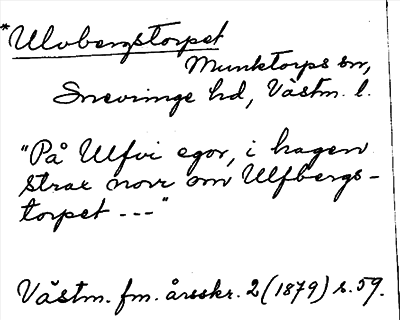 *Ulvbergstorpet
Munktorps sn,
Snevringe hd, Västm. l.
"På Ulfvi egor, i hagen
strax norr om Ulfbergs-
torpet ---"
Västm. fm. årsskr. 2 (1879) s. 59.